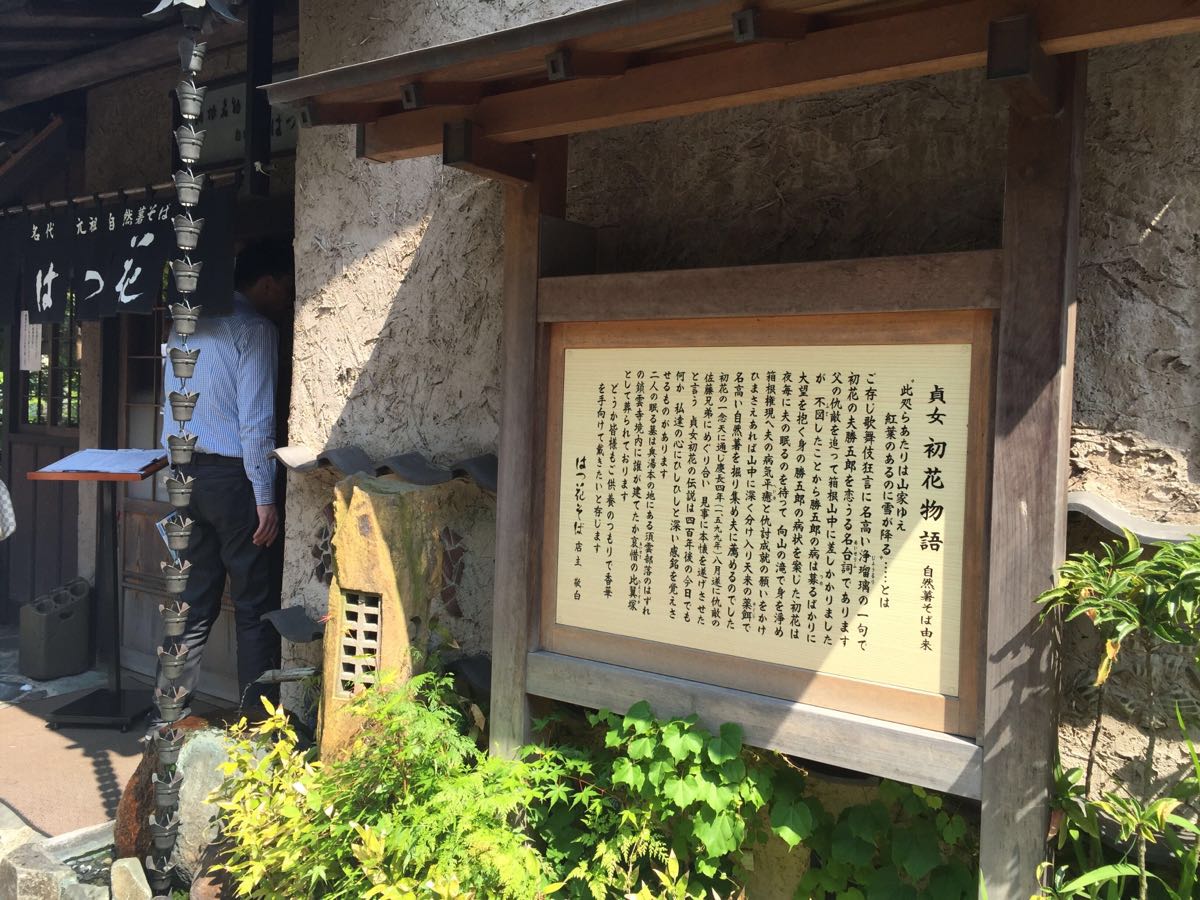 貞女 初花物語 自然薯そば由来
“此処らあたりは山家ゆえ
紅葉のあるのに雪が降る……とは
ご存じ歌舞伎狂言に名高い浄瑠璃の一句で
初花の夫勝五郎を恋うる名台詞であります
父の仇敵を追って箱根山中に差しかかりました
が 不図したことから勝五郎の病は募るばかりに
大望を抱く身の勝五郎の病状を案じた初花は
夜毎に夫の眠るのを待って 向山の滝で身を浄め
箱根権現へ夫の病気平癒と仇討成就の願いをかけ
ひまさえあれば山中に深く分け入り天来の薬餌で
名高い自然薯を掘り集め夫に薦めるのでした
初花の一念天に通じ慶長四年（一五九九年）八月遂に仇敵の
佐藤兄弟にめぐり合い 見事に本懐を遂げさせた
と言う 貞女初花の伝説は四百年後の今日でも
何か 私達の心にひしひしと深い感銘を覚えさ
せるものがあります
二人の眠る墓は奥湯本の地にある須雲部落のはずれ
の鎖雲寺境内に誰が建てたか哀惜の比翼塚
として葬られております
どうか皆様もご供養のつもりで香華
を手向けて戴きたいと存じます
はつ花そば 店主 敬白
名代 元祖自然薯そば
はつ花